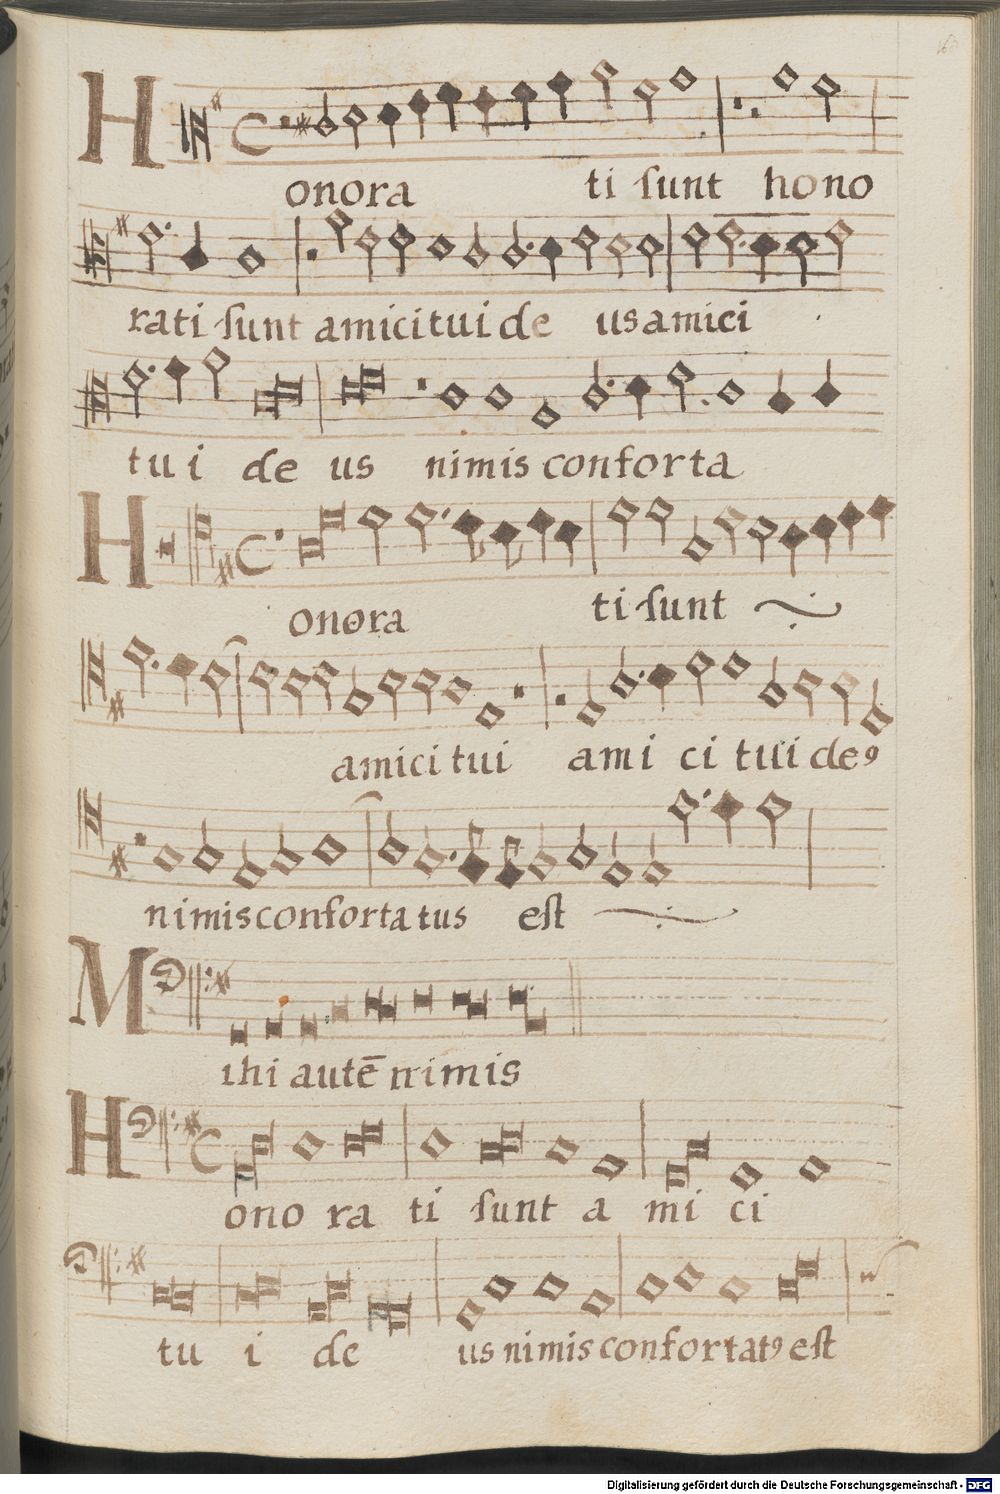 H
onora ti sunt hono
rati sunt amici tui de us amici
tu i de us nimis conforta
H
onora ti sunt
amici tui ami ci tui de9
nimis confortatus est
M
ihi autē nimis
H
ono ra ti sunt a mi ci
tu i de us nimis confortat9 est
Digitalisierung gefördert durch die Deutsche Forschungsgemeinschaft - DFG